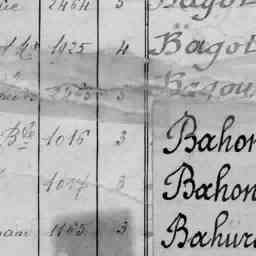 2464 5 Bagot
1925 4 Bagot
5 Bagou
1016 3 Bahon
1017 3 Bahon
1165 3 Bahur